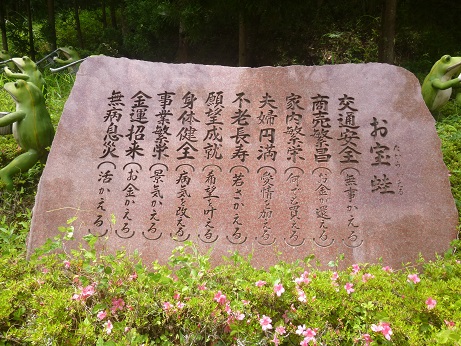 お宝蛙
交通安全(無事かえる)
商売繁昌(お金が返える)
家内繁栄
夫婦円満
不老長寿(若がかえる)
願望成就(希望を叶える)
身体健全(病気を改える)
事業繁栄(景気かえる)
金運招来(お金かえる)
無病息災(活かえる)